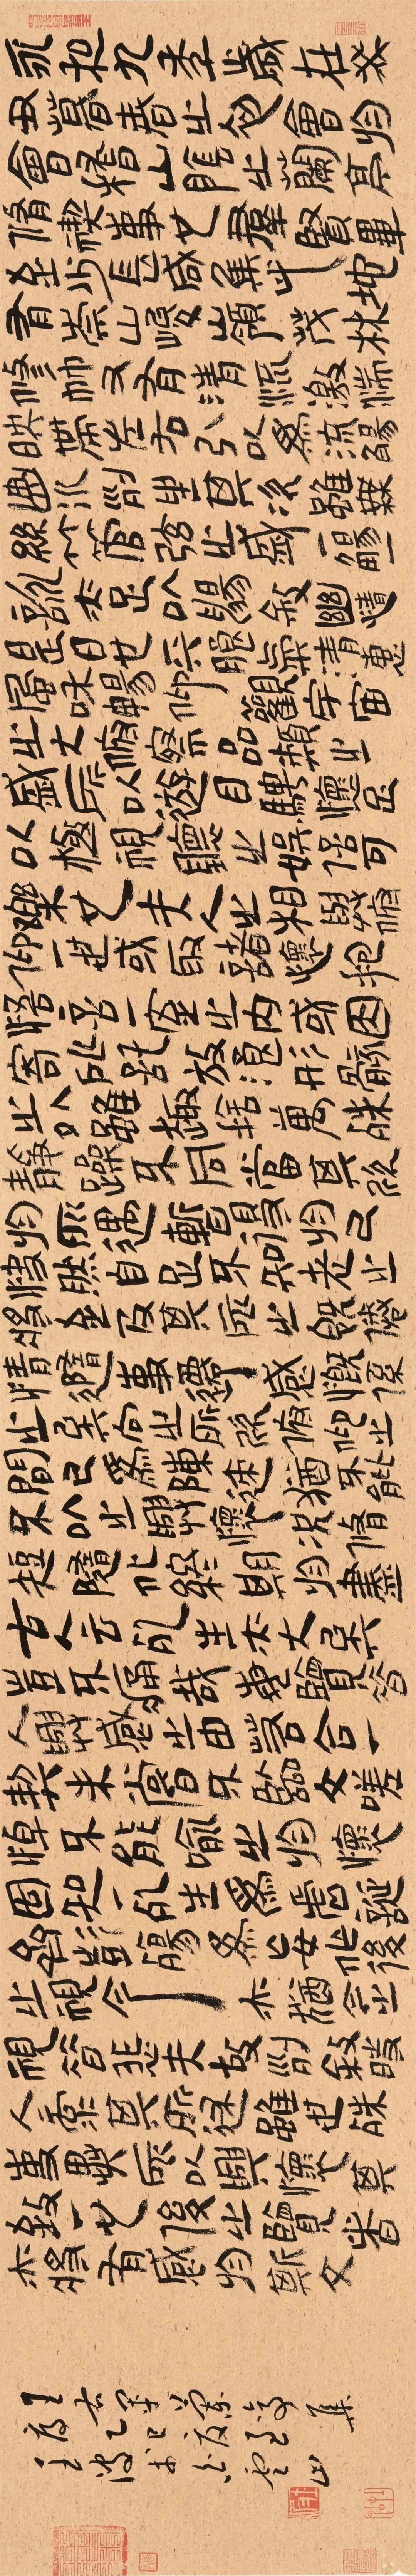 永和九年歲在癸
丑暮春之初會於
會稽山陰之蘭亭
脩禊事也羣賢畢
至少長咸集此地
有崇山峻領茂林
脩竹又有清流激湍
映帶左右引以為流觴
曲水列坐其次雖無
絲竹管弦之盛一觴一
詠亦足以暢敘幽情
是日也天朗氣清惠
風和暢仰觀宇宙
之大俯察品類之
盛所以遊目騁懷足
以極視聽之娛信可
樂也夫人之相與俯
仰一世或取諸懷抱
悟言一室之內或因
寄所託放浪形骸
之外雖趣捨萬殊
靜躁不同當其欣
於所遇暫得於己
快然自足不知老之
將至及其所之既倦
情隨事遷感慨係
之矣向之所欣俯仰之
間已為陳迹猶不能
不以之興懷況脩
短隨化終期於盡
古人云死生亦大矣
豈不痛哉每覽昔
人興感之由若合一
契未嘗不臨文嗟
悼不能喻之於懷
固知一死生為虛誕
齊彭殤為妄作後
之視今亦猶今之
視昔悲夫故列敘時
人錄其所述雖世殊
事異所以興懷其
致一也後之覽者
亦將有感於斯文
王右軍蘭亭集